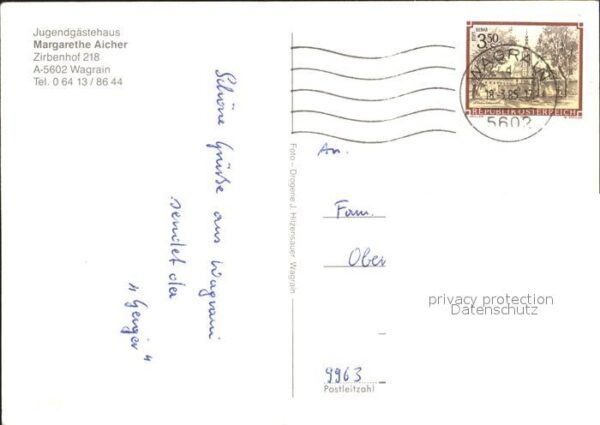 Jugendgästehaus
Margarethe Aicher
Zirbenhof 218
A-5602 Wagrain
Tel. 0 64 13 / 86 44
Schöne Grüße aus Wagrain
sendet der
Foto – Drogerie J. Hilzensauer, Wagrain
3.50
REPUBLIK ÖSTERREICH
WAGRAIN
5602
An
Fam.
Ober
privacy protection
Datenschutz
9963
Postleitzahl